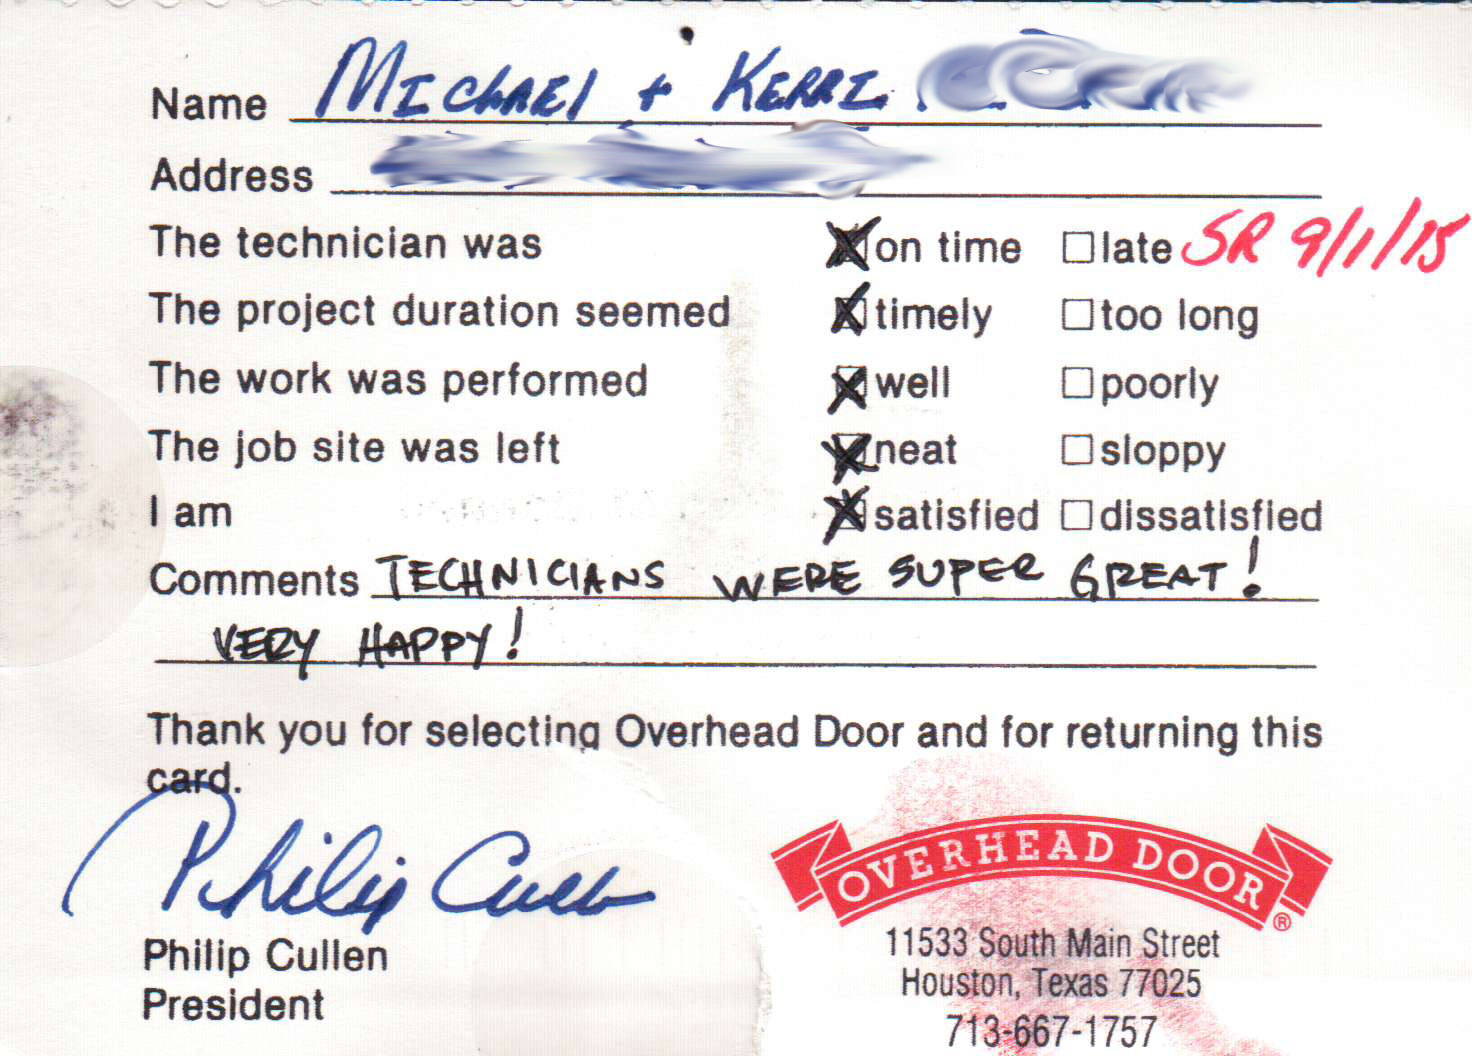 Name MICHAEL + KERRI
Address
The technician was on time late SR 9/1/15
The project duration seemed timely too long
The work was performed well poorly
The job site was left neat sloppy
I am satisfied dissatisfied
Comments TECHNICIANS WERE SUPER GREAT!
VERY HAPPY!
Thank you for selecting Overhead Door and for returning this
card.
Philip Cullen
Philip Cullen
President
OVERHEAD DOOR®
11533 South Main Street
Houston, Texas 77025
713-667-1757